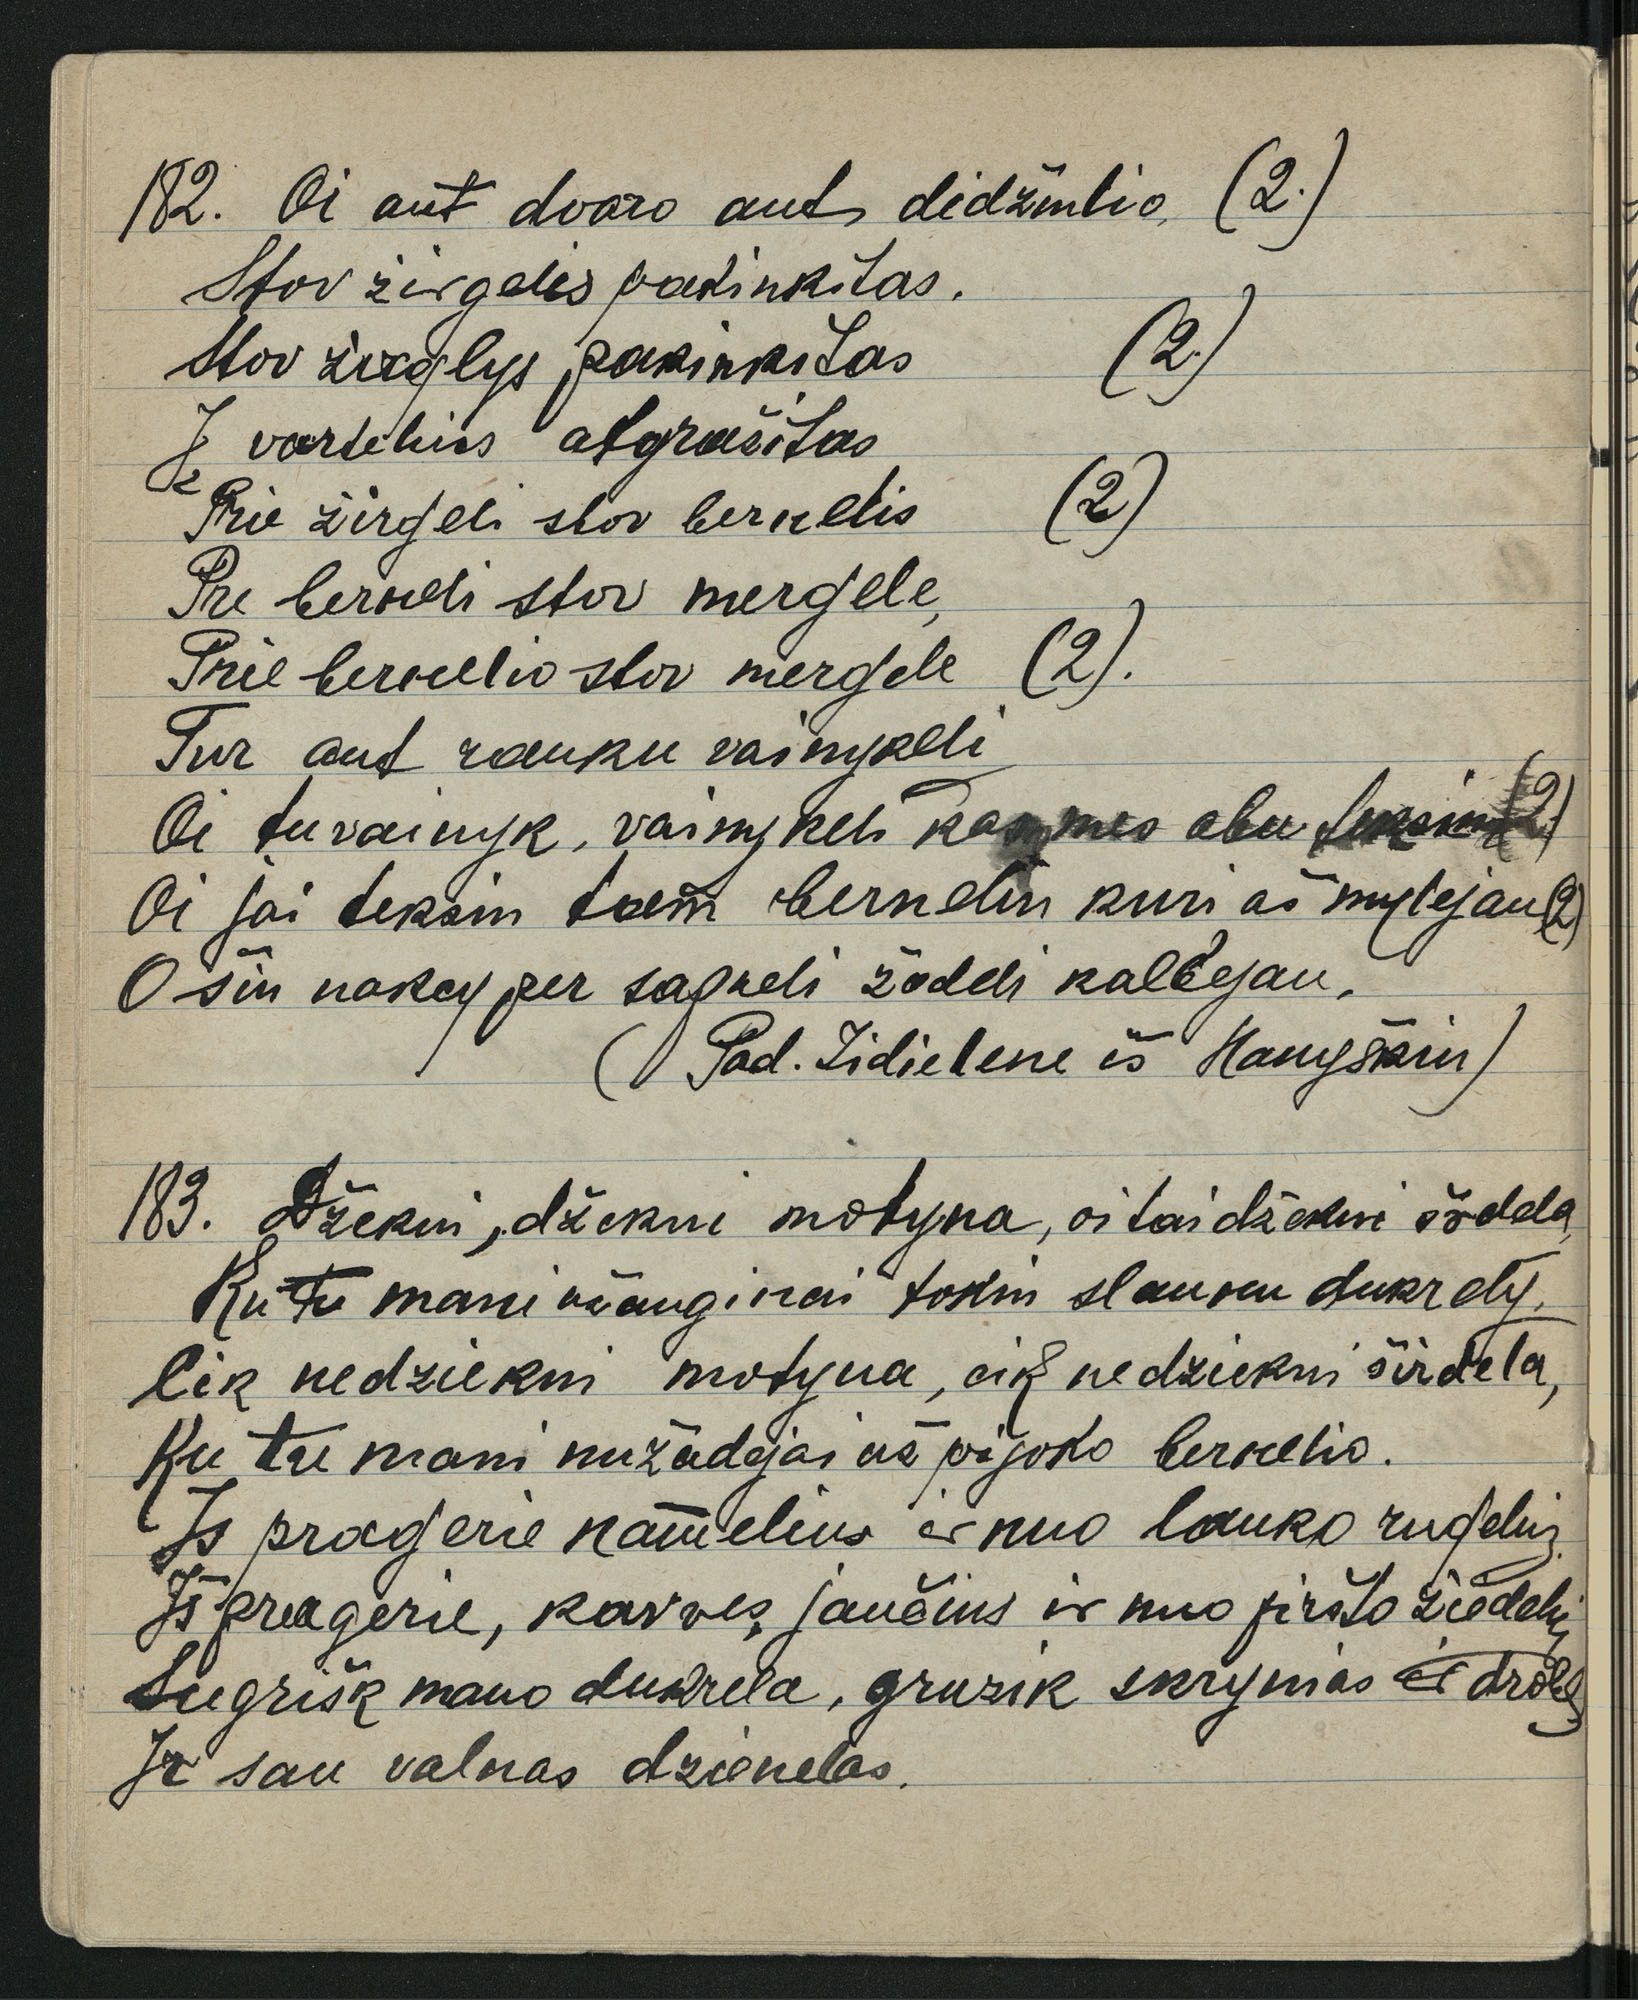 182. Oi aũt dvaro ant didžiulio (2.)
Stov žirgelis pakinkitas.
Stov žirglys pakinkitas (2.)
Į vartelius atgražitas
Prie žirgeli stov bernelis (2)
Pre berneli stov mergele,
Prie bernelio stov mergele (2).
Tur ant ranku vainykeli
Oi tu vainyk, vainykeli kam mes abu teksim (2)
Oi jai teksin tam berneliu kuri aš mylejau (2)
O šiu nakcy per sapneli žodeli kalbejau.
(Pad. Zidielene iš Manyškiu)
183. Džekui, džekui motyna, oi tai džekui širdela,
Ku tu mani užauginai tokiu slaunu dukrely.
Cik nedziekui motyna, cik nedziekui širdela,
Ku tu mani nužadejai už pijoko bernelio.
Is pragerie namelius ir nuo lauko rugelius.
Iš pragerie, karves, jaučius ir nuo piršto žiedelį
Sugrišk mano dukrela, gruzik skrynias ir droběs
Ir sau valnas dzienelas.